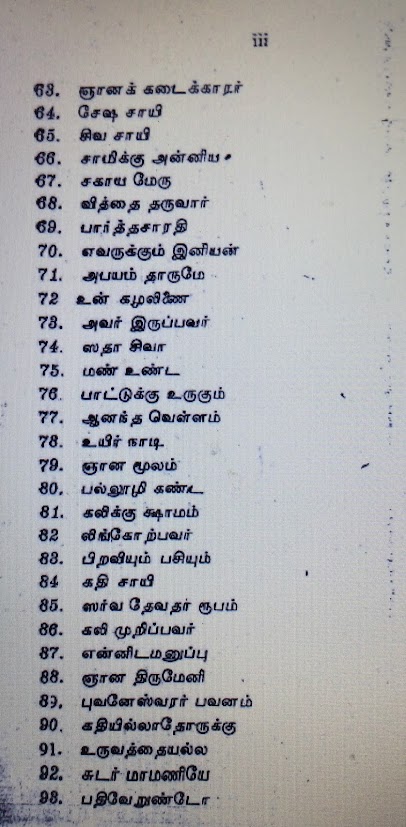 iii
63. ஞானக் கடைக்காரர்
64. சேஷ சாயி
65. சிவ சாயி
66. சாமிக்கு அன்னிய
67. சகாய மேரு
68. வித்தை தருவார்
69. பார்த்தசாரதி
70. எவருக்கும் இனியன்
71. அபயம் தாருமே
72 உன் கழலிணை
73. அவர் இருப்பவர்
74. ஸதா சிவா
75. மண் உண்ட
76. பாட்டுக்கு உருகும்
77. ஆனந்த வெள்ளம்
78. உயிர் நாடி
79. ஞான மூலம்
80. பல்லூழி கண்ட
81. கலிக்கு க்ஷாமம்
82 லிங்கோற்பவர்
83. பிறவியும் பசியும்
84 கதி சாயி
85. ஸர்வ தேவதர் ரூபம்
86. கலி முறிப்பவர்
87. என்னிடமனுப்பு
88. ஞான திருமேனி
89. புவனேஸ்வரர் பவனம்
90. கதியில்லாதோருக்கு
91. உருவத்தையல்ல
92. சுடர் மாமணியே
93. பதிவேறுண்டோ